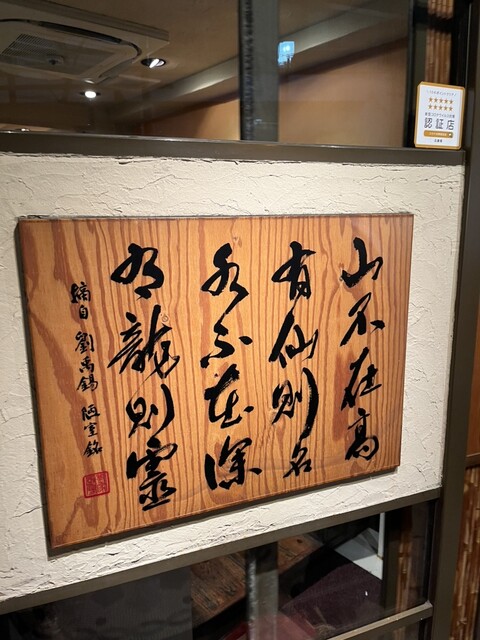 山不在高
有仙則名
水不在深
有龍則靈
摘自 劉禹錫 陋室銘
認証店